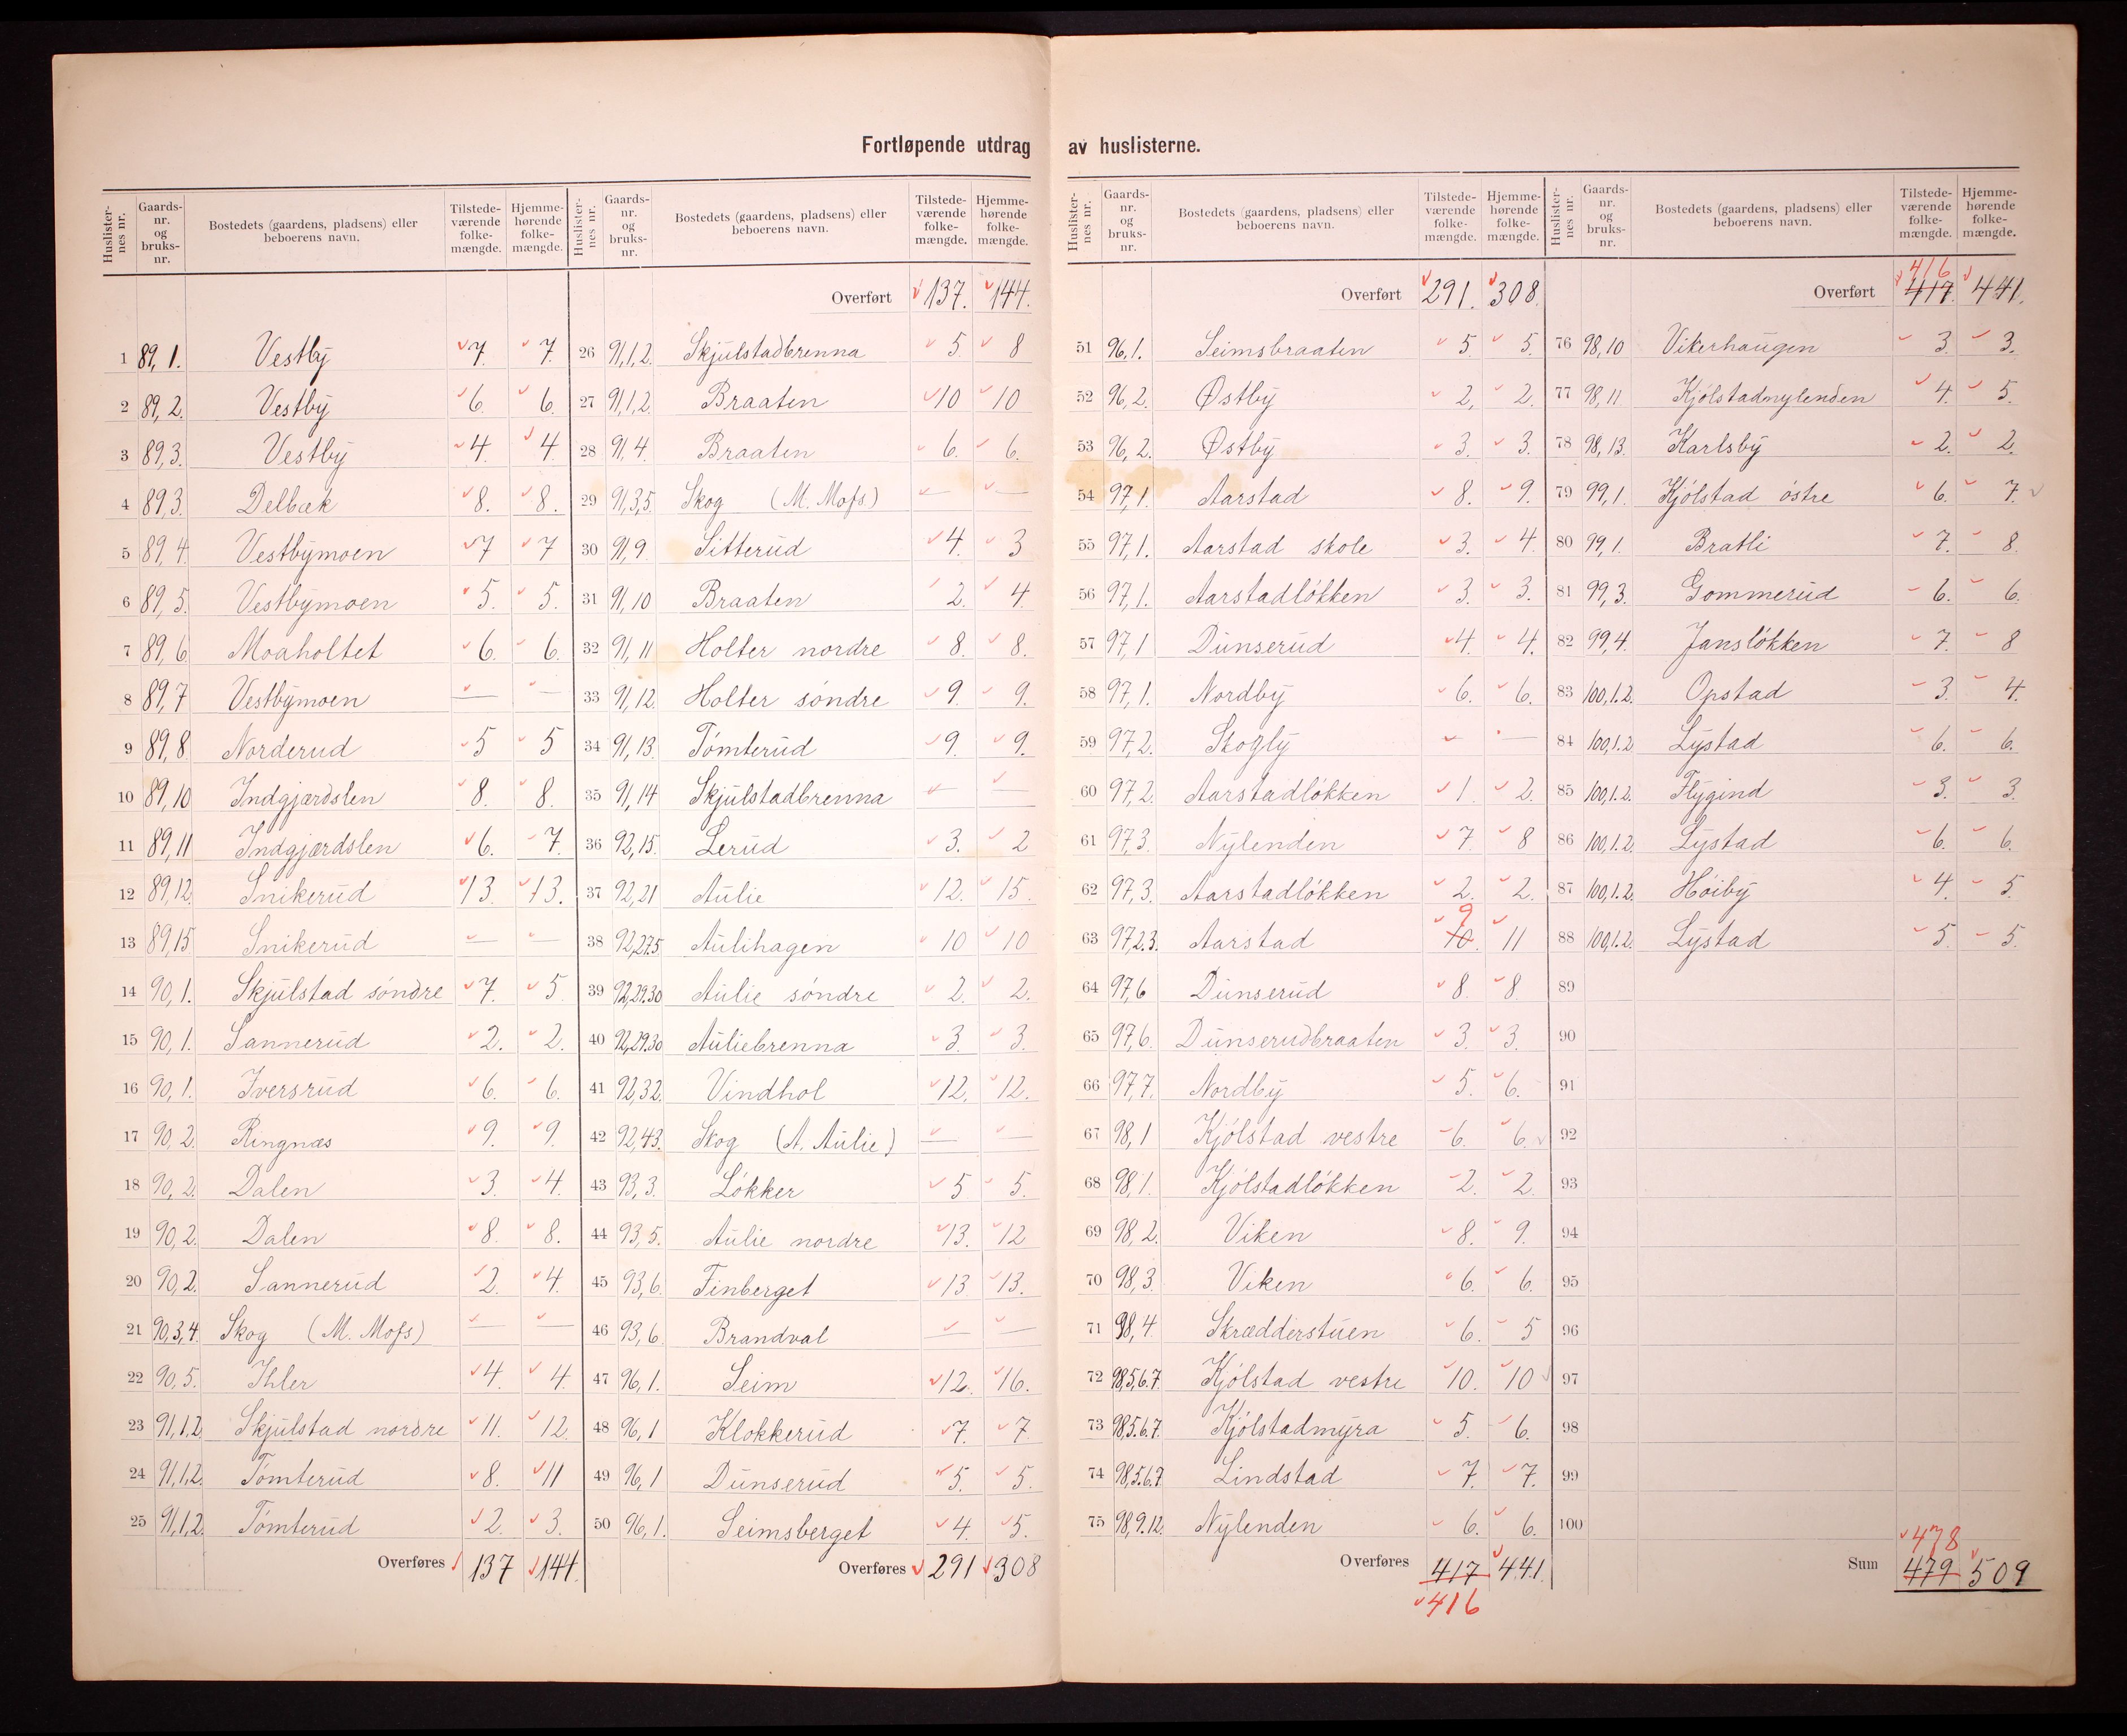 Fortløpende utdrag av huslisterne.
Huslisternes nr. Gaards-nr. og bruks-nr. Bostedets (gaardens, pladsens) eller beboerens navn. Tilstede-værende folke-mængde. Hjemme-hørende folke-mængde.
1 89,1. Vestby 7. 7.
2 89,2. Vestby 6. 6.
3 89,3. Vestby 4. 4.
4 89,3. Delbæk 8. 8.
5 89,4. Vestbymoen 7 7
6 89,5. Vestbymoen 5. 5.
7 89,6 Moaholtet 6. 6.
8 89,7 Vestbymoen — —
9 89,8. Norderud 5 5
10 89,10 Indgjærdslen 8. 8.
11 89,11 Indgjærdslen 6. 7.
12 89,12. Snikerud 13. 13.
13 89,15 Snikerud — —
14 90,1. Skjulstad söndre 7. 5
15 90,1. Sannerud 2. 2.
16 90,1. Iversrud 6. 6.
17 90,2. Ringnæs 9. 9.
18 90,2. Dalen 3. 4.
19 90,2. Dalen 8. 8.
20 90,2. Sannerud 2. 4.
21 90,3,4. Skog (M. Mofs) — —
22 90,5. Ihler 4. 4.
23 91,1,2. Skjulstad nordre 11. 12.
24 91,1,2. Tömterud 8. 11
25 91,1,2. Tömterud 2. 3.
Overføres 137 144.
Huslisternes nr. Gaards-nr. og bruks-nr. Bostedets (gaardens, pladsens) eller beboerens navn. Tilstede-værende folke-mængde. Hjemme-hørende folke-mængde.
Overført 137. 144.
26 91,1,2. Skjulstadbrenna 5. 8
27 91,1,2. Braaten 10 10
28 91,4. Braaten 6. 6.
29 91,3,5. Skog (M. Mofs) — —
30 91,9. Sitterud 4. 3
31 91,10 Braaten 2. 4.
32 91,11 Holter nordre 8. 8.
33 91,12. Holter söndre 9. 9.
34 91,13. Tömterud 9. 9.
35 91,14 Skjulstadbrenna — —
36 92,15. Lerud 3. 2
37 92,21 Aulie 12. 15.
38 92,27.5 Aulihagen 10 10
39 92,29.30 Aulie söndre 2. 2.
40 92,29.30 Auliebrenna 3. 3.
41 92,32. Vindhol 12. 12.
42 92,43. Skog (A. Aulie) — —
43 93,3. Lökker 5 5.
44 93,5. Aulie nordre 13. 12
45 93,6. Finberget 13. 13.
46 93,6. Brandval — —
47 96,1. Seim 12. 16.
48 96,1 Klokkerud 7. 7.
49 96,1 Dunserud 5. 5.
50 96,1. Seimsberget 4. 5.
Overføres 291 308
Huslisternes nr. Gaards-nr. og bruks-nr. Bostedets (gaardens, pladsens) eller beboerens navn. Tilstede-værende folke-mængde. Hjemme-hørende folke-mængde.
Overført 291. 308.
51 96,1. Seimsbraaten 5. 5.
52 96,2. Østby 2. 2.
53 96,2. Østby 3. 3.
54 97,1. Aarstad 8. 9.
55 97,1. Aarstad skole 3. 4.
56 97,1. Aarstadlökken 3. 3.
57 97,1 Dunserud 4. 4.
58 97,1. Nordby 6. 6.
59 97,2. Skogly — —
60 97,2. Aarstadlökken 1. 2.
61 97,3. Nylenden 7. 8
62 97,3. Aarstadlökken 2. 2.
63 97,2.3. Aarstad 10. 9 11
64 97,6 Dunserud 8. 8.
65 97,6. Dunserudbraaten 3. 3.
66 97,7. Nordby 5. 6.
67 98,1 Kjölstad vestre 6. 6.
68 98,1. Kjölstadlökken 2. 2.
69 98,2. Viken 8. 9.
70 98,3. Viken 6. 6.
71 98,4. Skrædderstuen 6. 5
72 98,5,6.7. Kjölstad vestre 10. 10
73 98,5.6.7. Kjölstadmyra 5. 6.
74 98,5.6.7 Lindstad 7. 7.
75 98,9.12. Nylenden 6. 6.
Overføres 417 441.
416
Huslisternes nr. Gaards-nr. og bruks-nr. Bostedets (gaardens, pladsens) eller beboerens navn. Tilstede-værende folke-mængde. Hjemme-hørende folke-mængde.
416
Overført 417. 441.
76 98,10 Vikerhaugen 3. 3.
77 98,11 Kjölstadnylenden 4. 5.
78 98,13. Karlsby 2. 2.
79 99,1. Kjölstad östre 6. 7.
80 99,1. Bratli 7. 8.
81 99,3. Gommerud 6. 6.
82 99,4. Janslökken 7. 8
83 100,1.2. Opstad 3. 4.
84 100,1.2 Lystad 6. 6.
85 100,1.2. Flygind 3. 3.
86 100,1.2. Lystad 6. 6.
87 100,1.2. Höiby 4. 5.
88 100,1.2. Lystad 5. 5.
89
90
91
92
93
94
95
96
97
98
99
100
478
Sum 479 509